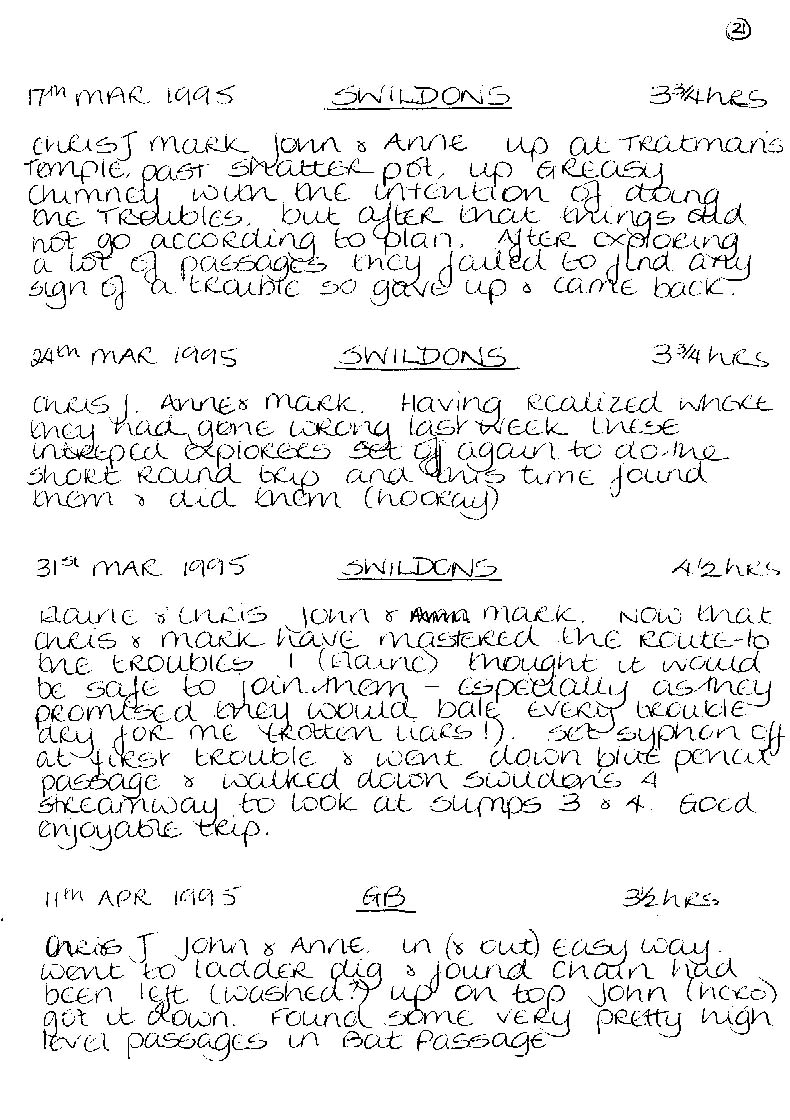 21
17th MAR 1995 SWILDONS 3¾hRS
Chris J Mark John & Anne up at Tratman's
Temple, past shatter pot, up Greasy
Chimney with the intention of doing
the Troubles, but after that things did
not go according to plan. After exploring
a lot of passages they failed to find any
sign of a trouble so gave up & came back.
24th MAR 1995 SWILDONS 3¾hRS
Chris J. Anne & Mark. Having realized where
they had gone wrong last week these
intreped explorers set of again to do the
short round trip and this time found
them & did them (hooray)
31st MAR 1995 SWILDONS 4½hRS
Elaine & Chris John & Mark. Now that
Chris & Mark have mastered the route to
the troubles I (Elaine) thought it would
be safe to join them - especially as they
promised they would bale every trouble
dry for me (rotten liars!). Set syphon off
at first trouble & went down blue pencil
passage & walked down Swildons 4
streamway to look at sumps 3 & 4. Good
enjoyable trip.
11th APR 1995 GB 3½hRS
Chris J John & Anne. in (& out) easy way.
went to ladder dig & found chain had
been left (washed?) up on top John (hero)
got it down. Found some very pretty high
level passages in Bat Passage